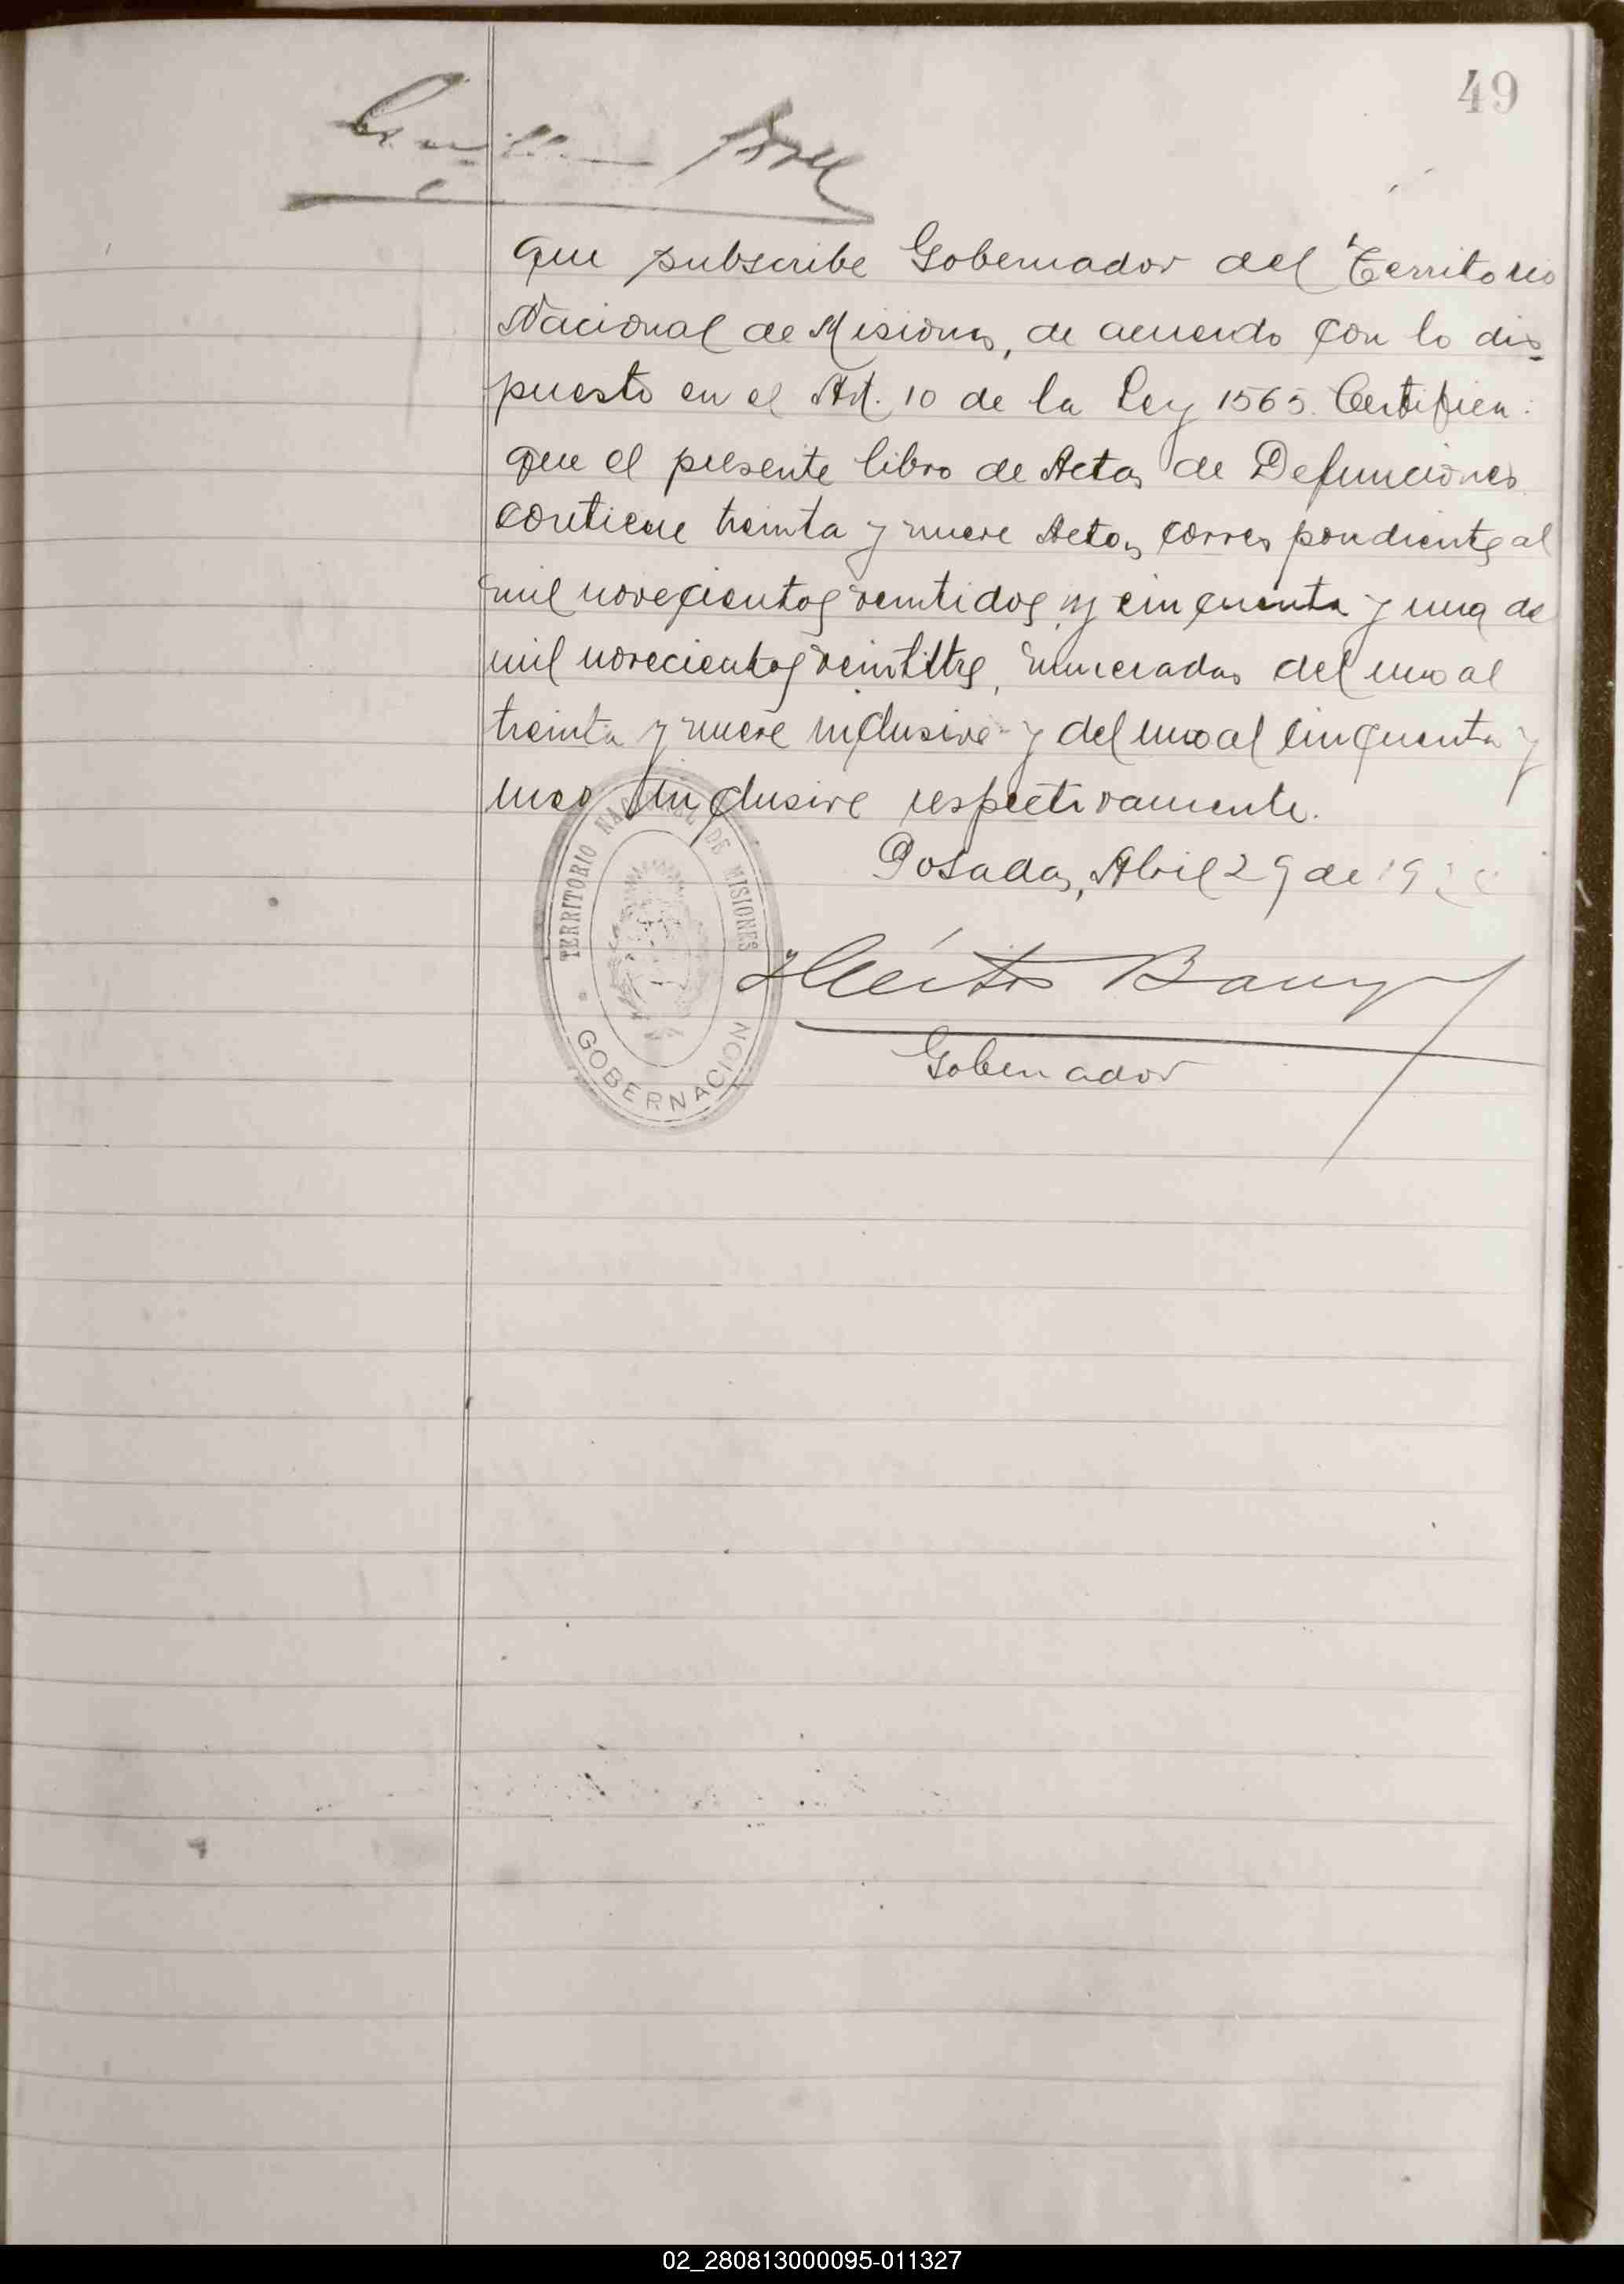 49
que subscribe Gobernador del Territorio
Nacional de Misiones, de acuerdo con lo dis-
puesto en el Art. 10 de la Ley 1565. Certifica:
que el presente libro de Actas de Defunciones
contiene treinta y nueve Actas correspondientes al
mil novecientos veintidos y cincuenta y una de
mil novecientos veintitres, numeradas del uno al
treinta y nueve inclusive y del uno al cincuenta y
uno inclusive respectivamente.
Posadas, Abril 29 de
TERRITORIO NACIONAL DE MISIONES
GOBERNACION
Gobernador
02_280813000095-011327